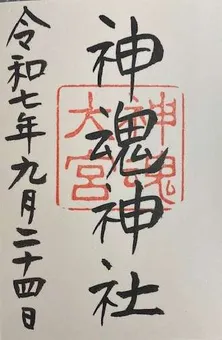 神魂神社
神魂
大宮
令和七年九月二十四日